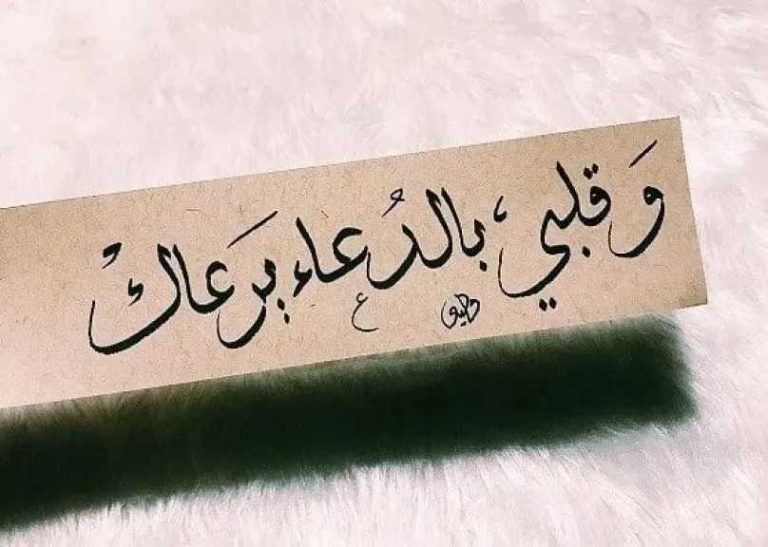 وَ قلبي بالدُعاء يَرعاكْ